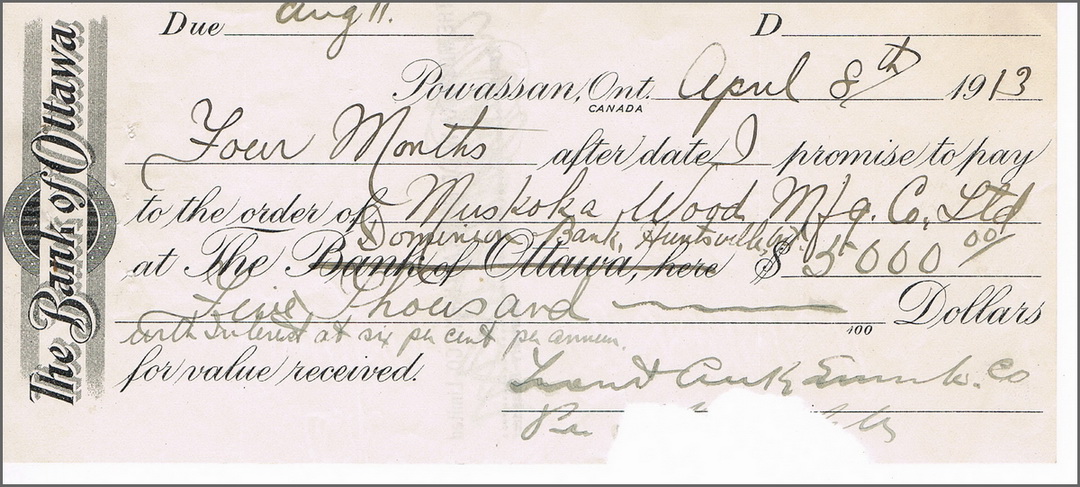 The Bank of Ottawa
Due Aug 11. D
Powassan, Ont. April 8th 1913
CANADA
Four Months after date I promise to pay
to the order of Muskoka Wood Mfg. Co. Ltd
Dominion Bank, Huntsville, Ont.
at The Bank of Ottawa, here $ 5000 00/
Five Thousand Dollars
100
with interest at six per cent per annum.
for value received.
Co
Per